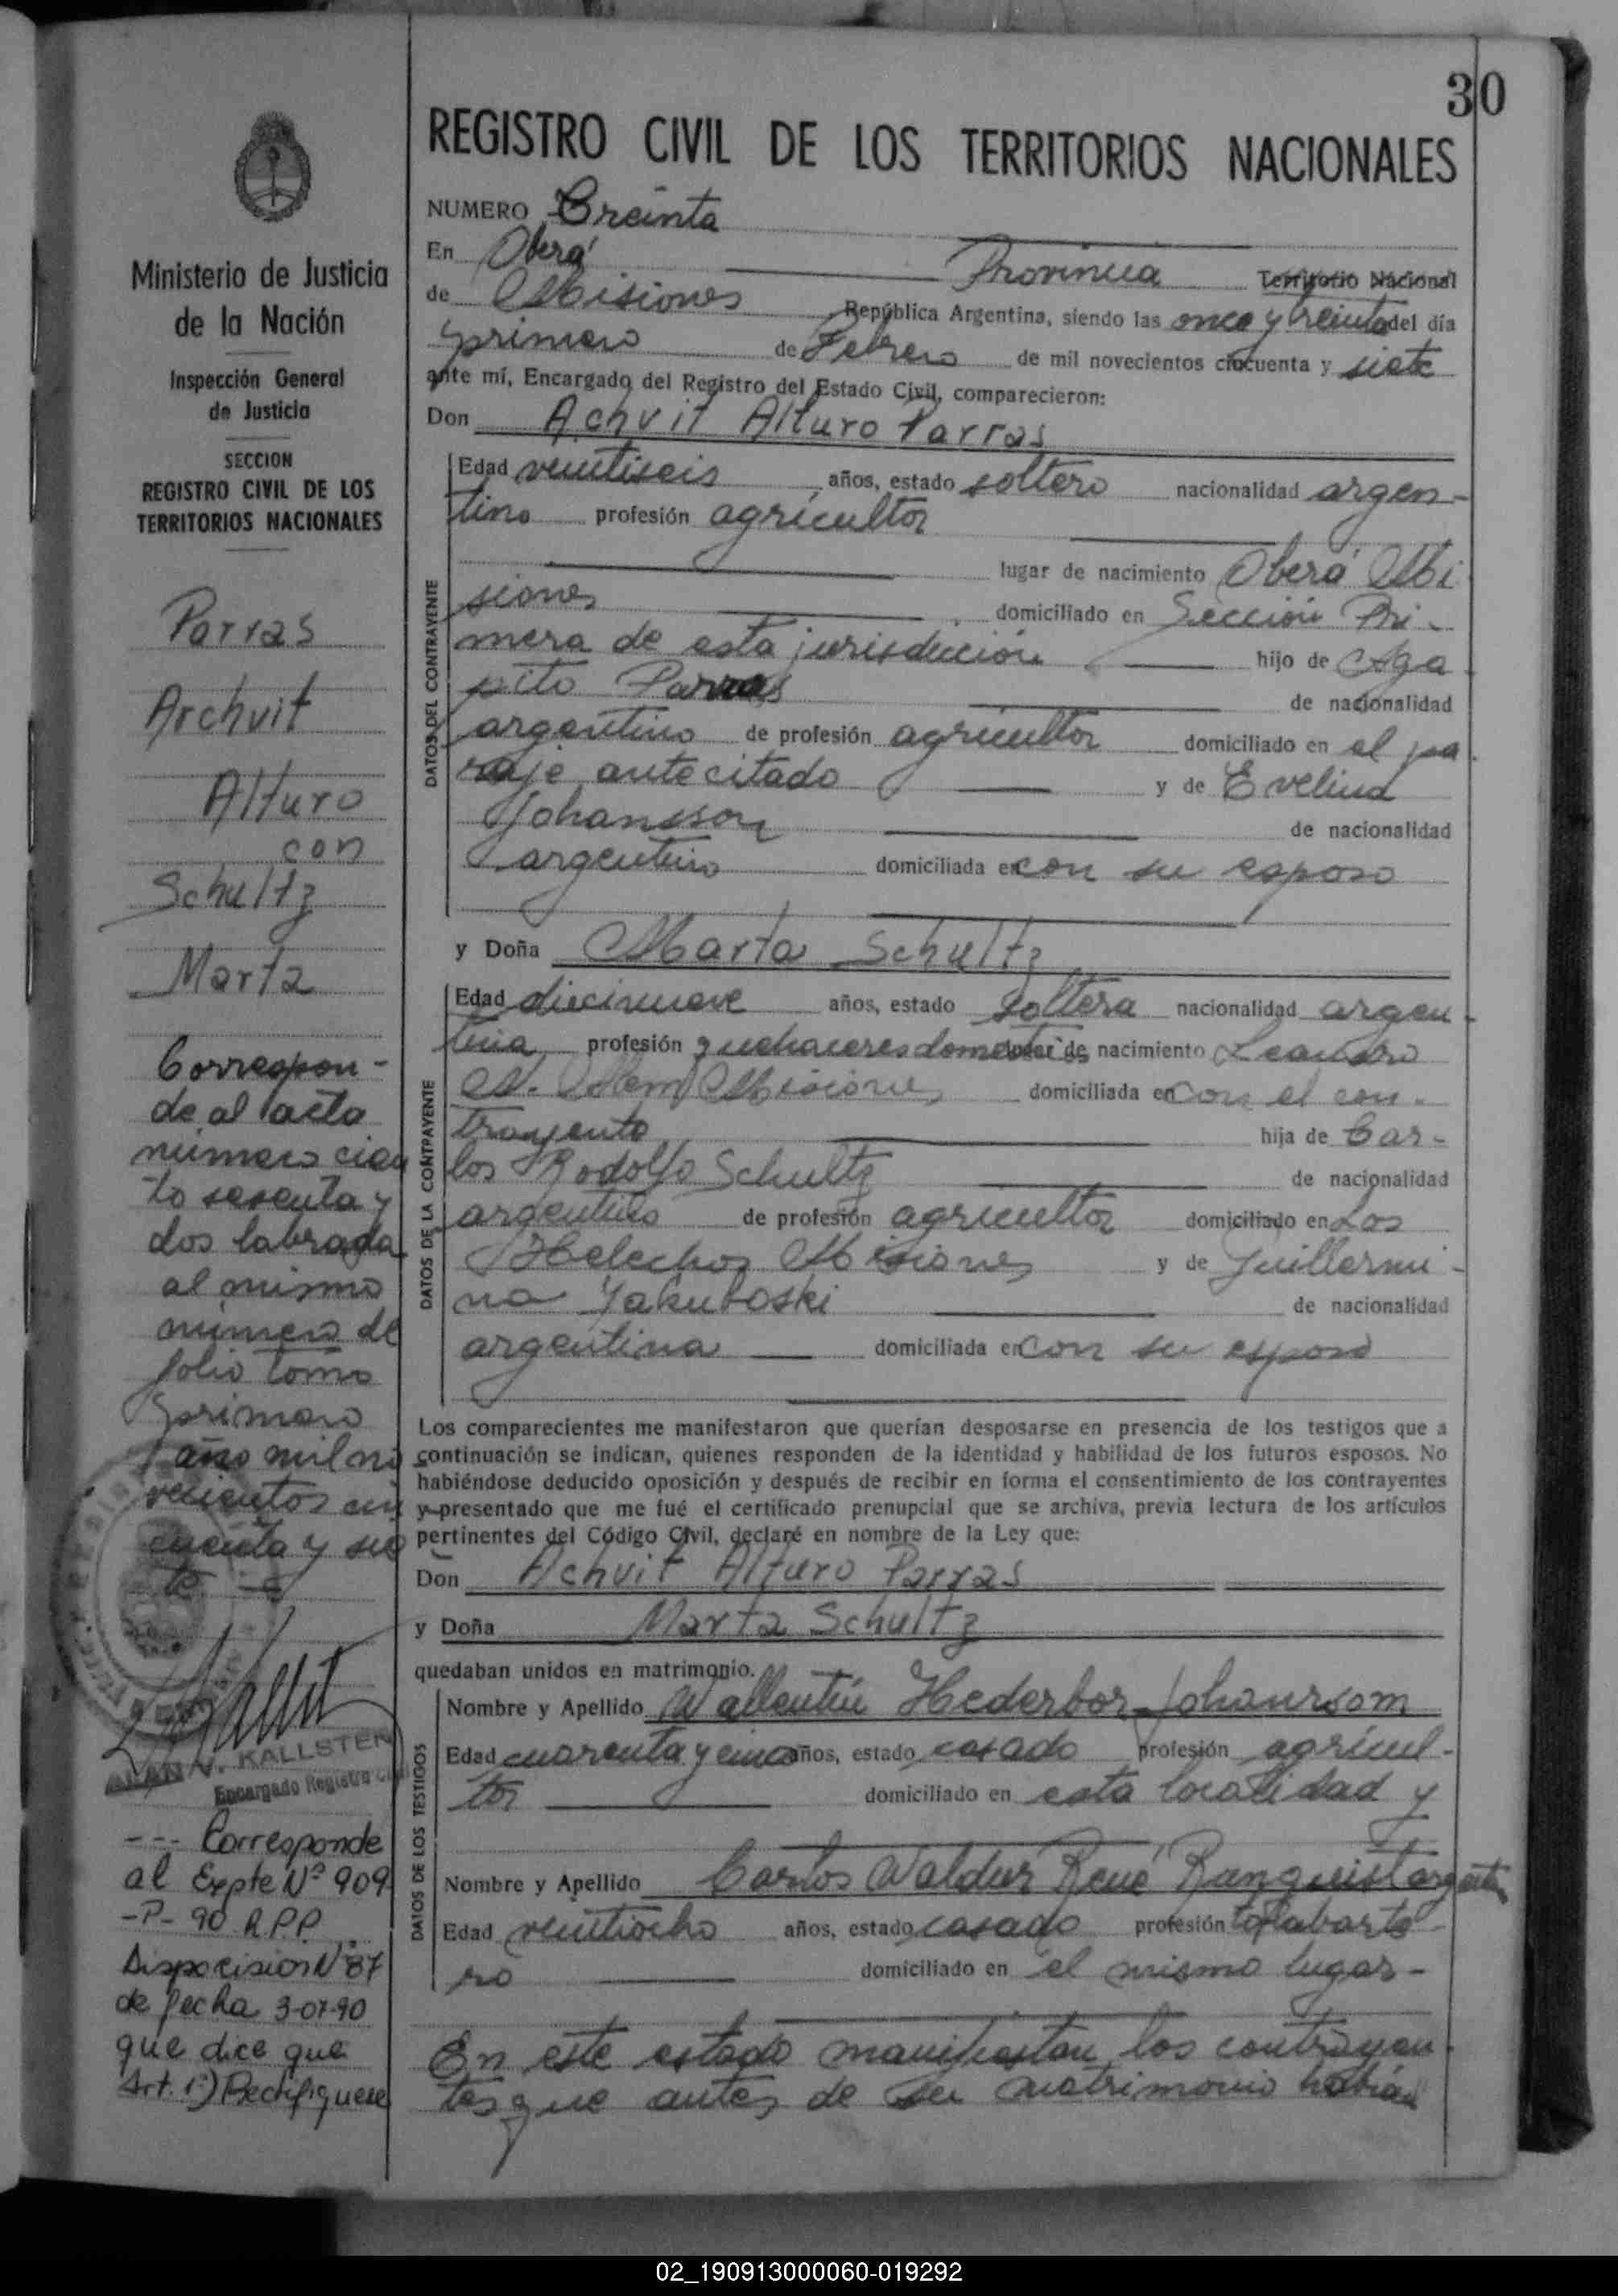 30
REGISTRO CIVIL DE LOS TERRITORIOS NACIONALES
NUMERO Treinta
En Oberá Provincia Territorio Nacional
de Misiones República Argentina, siendo las once y treinta del día
primero de Febrero de mil novecientos cincuenta y siete
ante mí, Encargado del Registro del Estado Civil, comparecieron:
Don Achvit Alturo Parras
DATOS DEL CONTRAYENTE
Edad veintiseis años, estado soltero nacionalidad argen-
tino profesión agricultor
lugar de nacimiento Oberá Mi
siones domiciliado en Sección Pri-
mera de esta jurisdicción hijo de Aga
pito Parras de nacionalidad
argentino de profesión agricultor domiciliado en el pa
raje antecitado y de Evelina
Johansson de nacionalidad
argentino domiciliada en con su esposo
y Doña Marta Schultz
DATOS DE LA CONTRAYENTE
Edad diecinueve años, estado soltera nacionalidad argen-
tina profesión quehaceres domesticos lugar de nacimiento Leandro
N. Alem Misiones domiciliada en con el con-
trayente hija de Car-
los Rodolfo Schultz de nacionalidad
argentino de profesión agricultor domiciliado en Los
Helechos Misiones y de Guillermi-
na Yakuboski de nacionalidad
argentina domiciliada en con su esposo
Los comparecientes me manifestaron que querían desposarse en presencia de los testigos que a
continuación se indican, quienes responden de la identidad y habilidad de los futuros esposos. No
habiéndose deducido oposición y después de recibir en forma el consentimiento de los contrayentes
y presentado que me fué el certificado prenupcial que se archiva, previa lectura de los artículos
pertinentes del Código Civil, declaré en nombre de la Ley que:
Don Achvit Alturo Parras
y Doña Marta Schultz
quedaban unidos en matrimonio.
DATOS DE LOS TESTIGOS
Nombre y Apellido Wallentín Hederbor Johansson
Edad cuarenta y cinco años, estado casado profesión agricul-
tor domiciliado en esta localidad y
Nombre y Apellido Carlos Waldur René Ranquist argentin
Edad veintiocho años, estado casado profesión talabarte
ro domiciliado en el mismo lugar-
En este estado manifiestan los contrayen
tes que antes de su matrimonio habían
Ministerio de Justicia
de la Nación
Inspección General
de Justicia
SECCION
REGISTRO CIVIL DE LOS
TERRITORIOS NACIONALES
Parras
Archvit
Alturo
con
Schultz
Marta
Correspon-
de al acta
número cien
to sesenta y
dos labrada
al mismo
número de
folio tomo
primero
año mil no
vecientos cin
cuenta y sie
te
KALLSTEN
Encargado Registro Civil
--- Corresponde
al Expte Nº 909
-P- 90 R.P.P.
Disposición Nº 87
de fecha 3-07-90
que dice que
Art. 1º) Rectifiquese
02_190913000060-019292